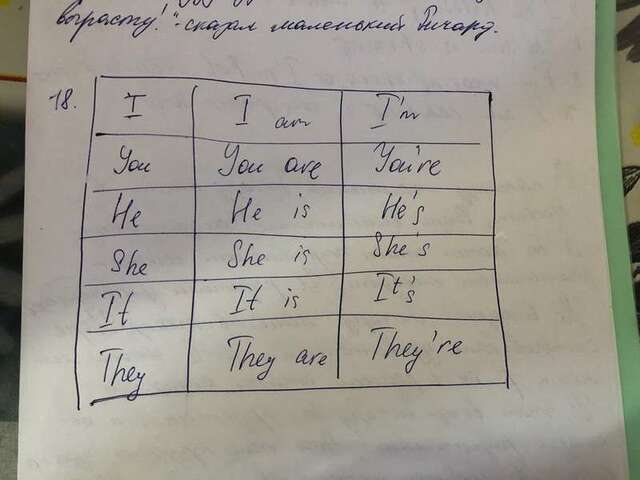 вырасту!"-сказал маленький Ричард.
18.
I I am I'm
You You are You're
He He is He's
She She is She's
It It is It's
They They are They're